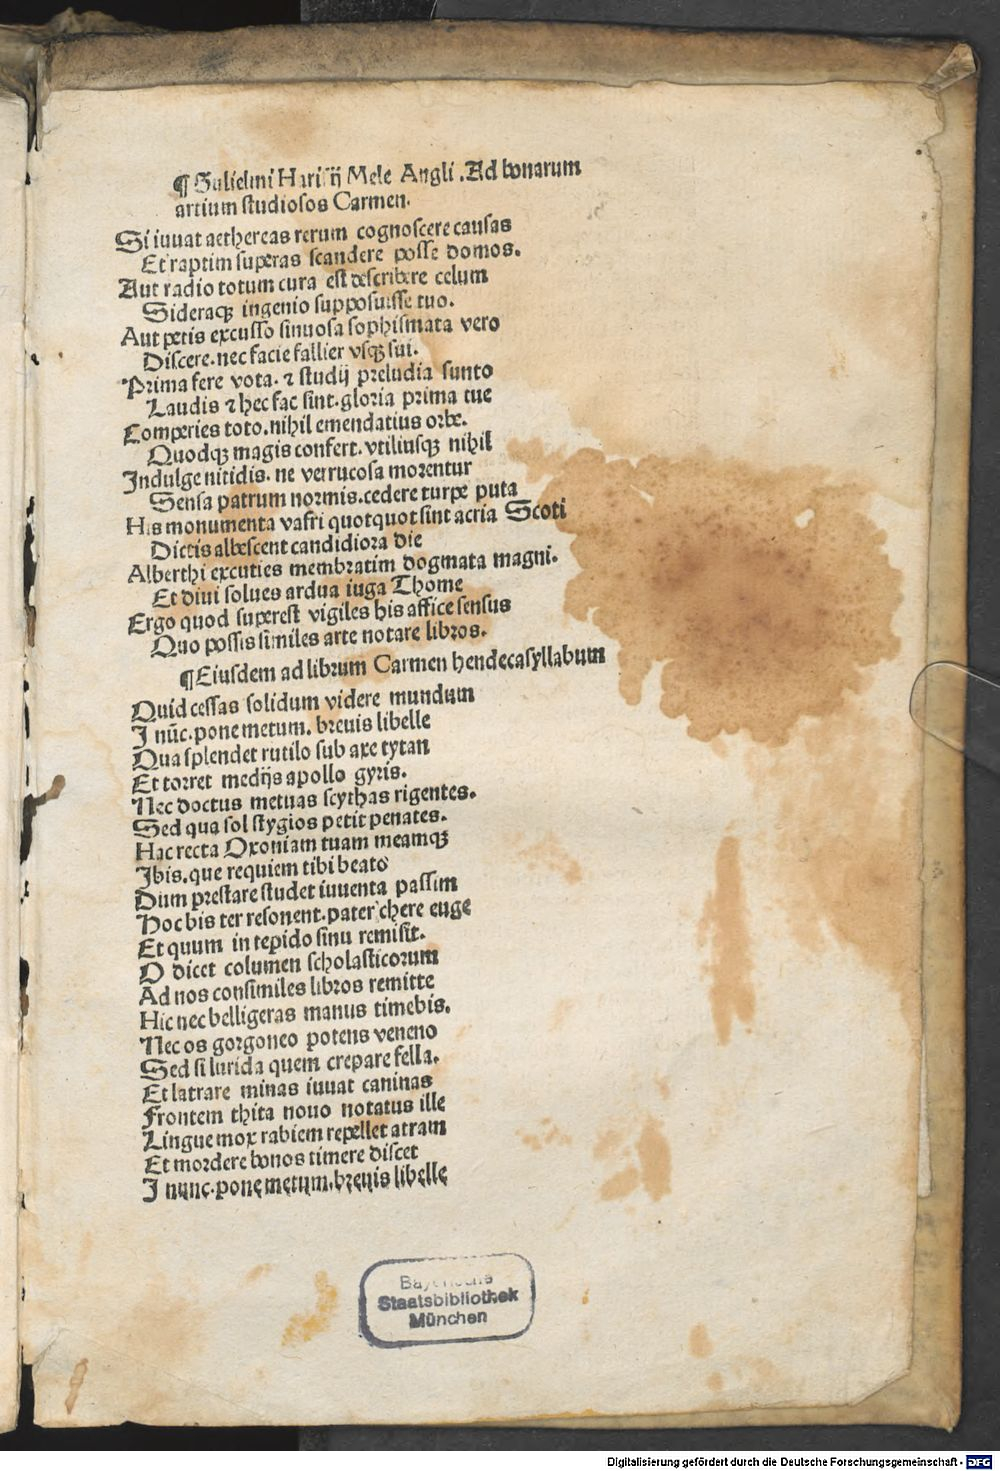 ¶ Gulielmi Harisij Mele Angli .Ad bonarum
artium studiosos Carmen.
Si iuuat aethereas rerum cognoscere causas
Et raptim superas scandere posse domos.
Aut radio totum cura est describere celum
Sideraqȝ ingenio supposuisse tuo.
Aut petis excusso sinuosa sophismata vero
Discere. nec facie fallier vsqȝ sui.
Prima fere vota. ⁊ studij preludia sunto
Laudis ⁊ hec fac sint. gloria prima tue
Comperies toto. nihil emendatius orbe.
Quodqȝ magis confert. vtiliusqȝ nihil
Indulge nitidis. ne verrucosa morentur
Sensa patrum normis. cedere turpe puta
His monumenta vafri quotquot sint acria Scoti
Dictis albescent candidiora die
Alberthi excuties membratim dogmata magni.
Et diui solues ardua iuga Thome
Ergo quod superest vigiles his affice sensus
Quo possis similes arte notare libros.
¶ Eiusdem ad librum Carmen hendecasyllabum
Quid cessas solidum videre mundum
I nūc. pone metum. breuis libelle
Qua splendet rutilo sub axe tytan
Et torret medijs apollo gyris.
Nec doctus metuas scythas rigentes.
Sed qua sol stygios petit penates.
Hac recta Oxoniam tuam meamqȝ
Ibis. que requiem tibi beato
Dum prestare studet iuuenta passim
Hoc bis ter resonent. pater chere euge
Et quum in tepido sinu remisit.
O dicet columen scholasticorum
Ad nos consimiles libros remitte
Hic nec belligeras manus timebis.
Nec os gorgoneo potens veneno
Sed si lurida quem crepare fella.
Et latrare minas iuuat caninas
Frontem thita nouo notatus ille
Lingue mox rabiem repellet atram
Et mordere bonos timere discet
I nunc. pone metum. breuis libelle
Bayerische
Staatsbibliothek
München
Digitalisierung gefördert durch die Deutsche Forschungsgemeinschaft - DFG